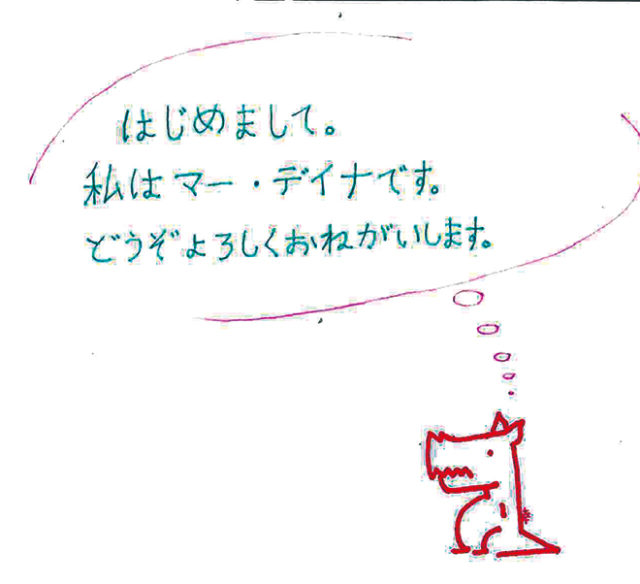 はじめまして。
私はマー・デイナです。
どうぞよろしくおねがいします。